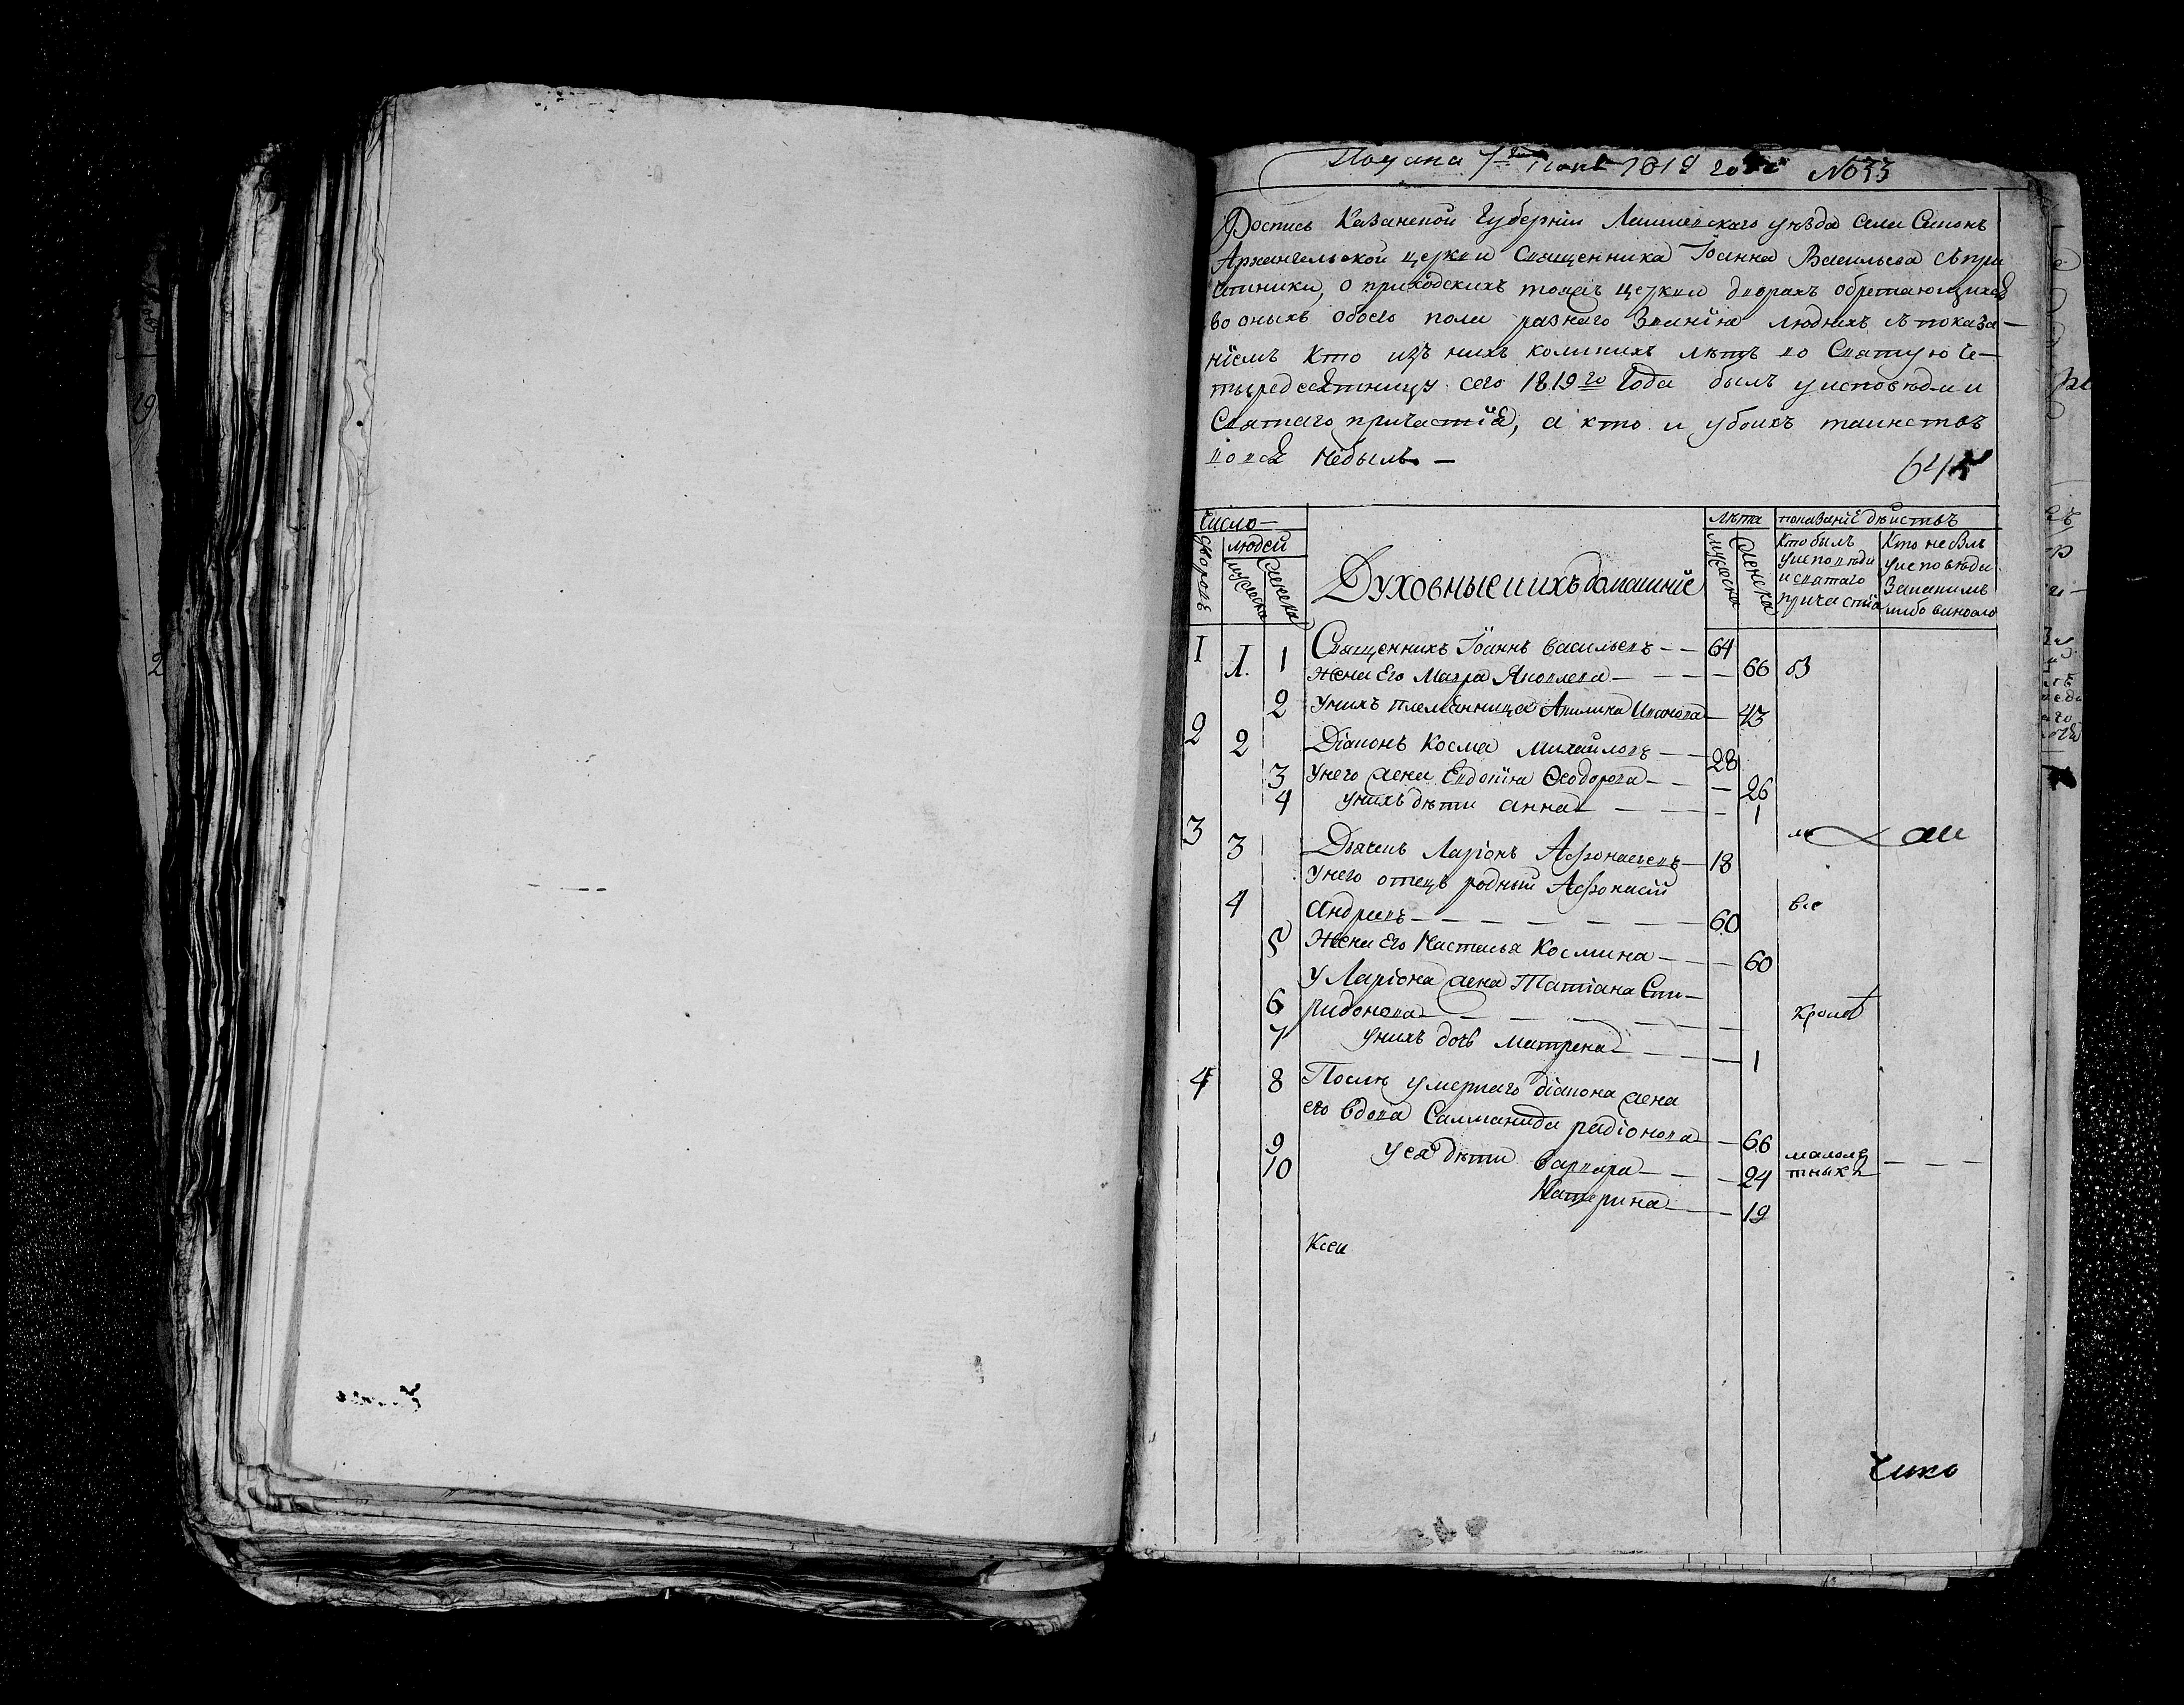 Подана 7го Iюня 1819 года №33
Роспись Казанской Губернiи Лаишевскаго уѣзда села
Архангельской церкви Священника Iоанна Васильева съ при
чтники, о приходскихъ тояжъ церкви дворахъ обретающихся
во оныхъ обоего пола разнаго Званiя людяхъ съ показа—
нiемъ кто изъ нихъ коликихъ лѣтъ во Святую Че—
тыредесятницу сего 1819го Года былъ у исповѣди и
Святаго причастiя, а кто и убоихъ таинствъ
вовся небылъ. —
Число—
людей
дворовъ
мужеска
женска
Духовные и ихъ домашнiе
лѣта
мужеска
женска
показанiе дѣйствъ
Кто былъ
уисповѣди
и святаго
причастiя
Кто не былъ
уисповѣди
Закакимъ
либо виносло
1 1. 1 Священникъ Iоаннъ васильевъ — — 64
Жена Его Мавра Яковлева — — — — 66
2 унихъ племянница Акилина Иванова — 43
2 2 Дiаконъ Косма михайловъ — — 28
3 унего жена Евдокiя Ѳеодорова — — — 26
4 унихъ дѣти анна — — — — 1
3 3 Дьячекъ Ларiонъ Афонасьевъ — 18
унего отецъ родный Афонасiй
4 андреевъ — — — — — — 60 все
5 Жена Его Настасья Космина — — — 60
У Ларiона жена Татiана Спи—
6 ридонова — — — — — — кромѣ
7 унихъ дочь матрена — — — — 1
4 8 Послѣ умершаго дiакона жена
его вдова Салманида радiонова — 66
9 у ея дѣти варвара — — — 24 малолѣ
10 Катерина — — 19 тныхъ — — —